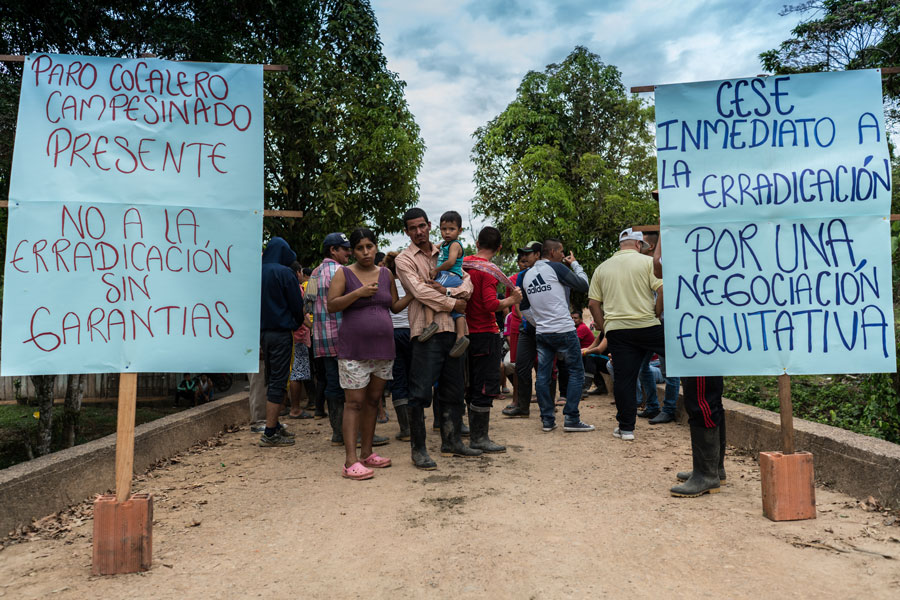 PARO COCALERO
CAMPESINADO
PRESENTE
NO A LA
ERRADICACIÓN
SIN
GARANTIAS
CESE
INMEDIATO A
LA ERRADICACIÓN
POR UNA
NEGOCIACIÓN
EQUITATIVA
adidas